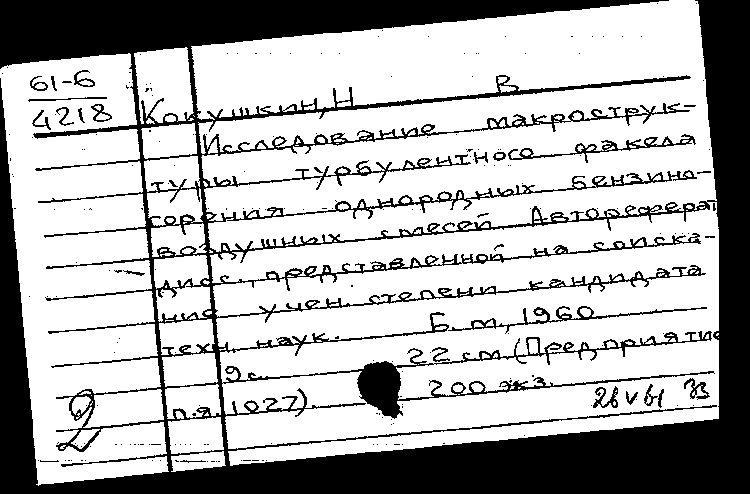 61-6
4218
Кокушкин, Н В
Исследование макрострук-
туры турбулентного факела
горения однородных бензино-
воздушных смесей Автореферат
дисс., представленной на соиска-
ние учен. степени кандидата
техн. наук. Б. м., 1960
9 с. 22 см. (Предприятие
п.я. 1027). 200 экз.
2
26 V 61